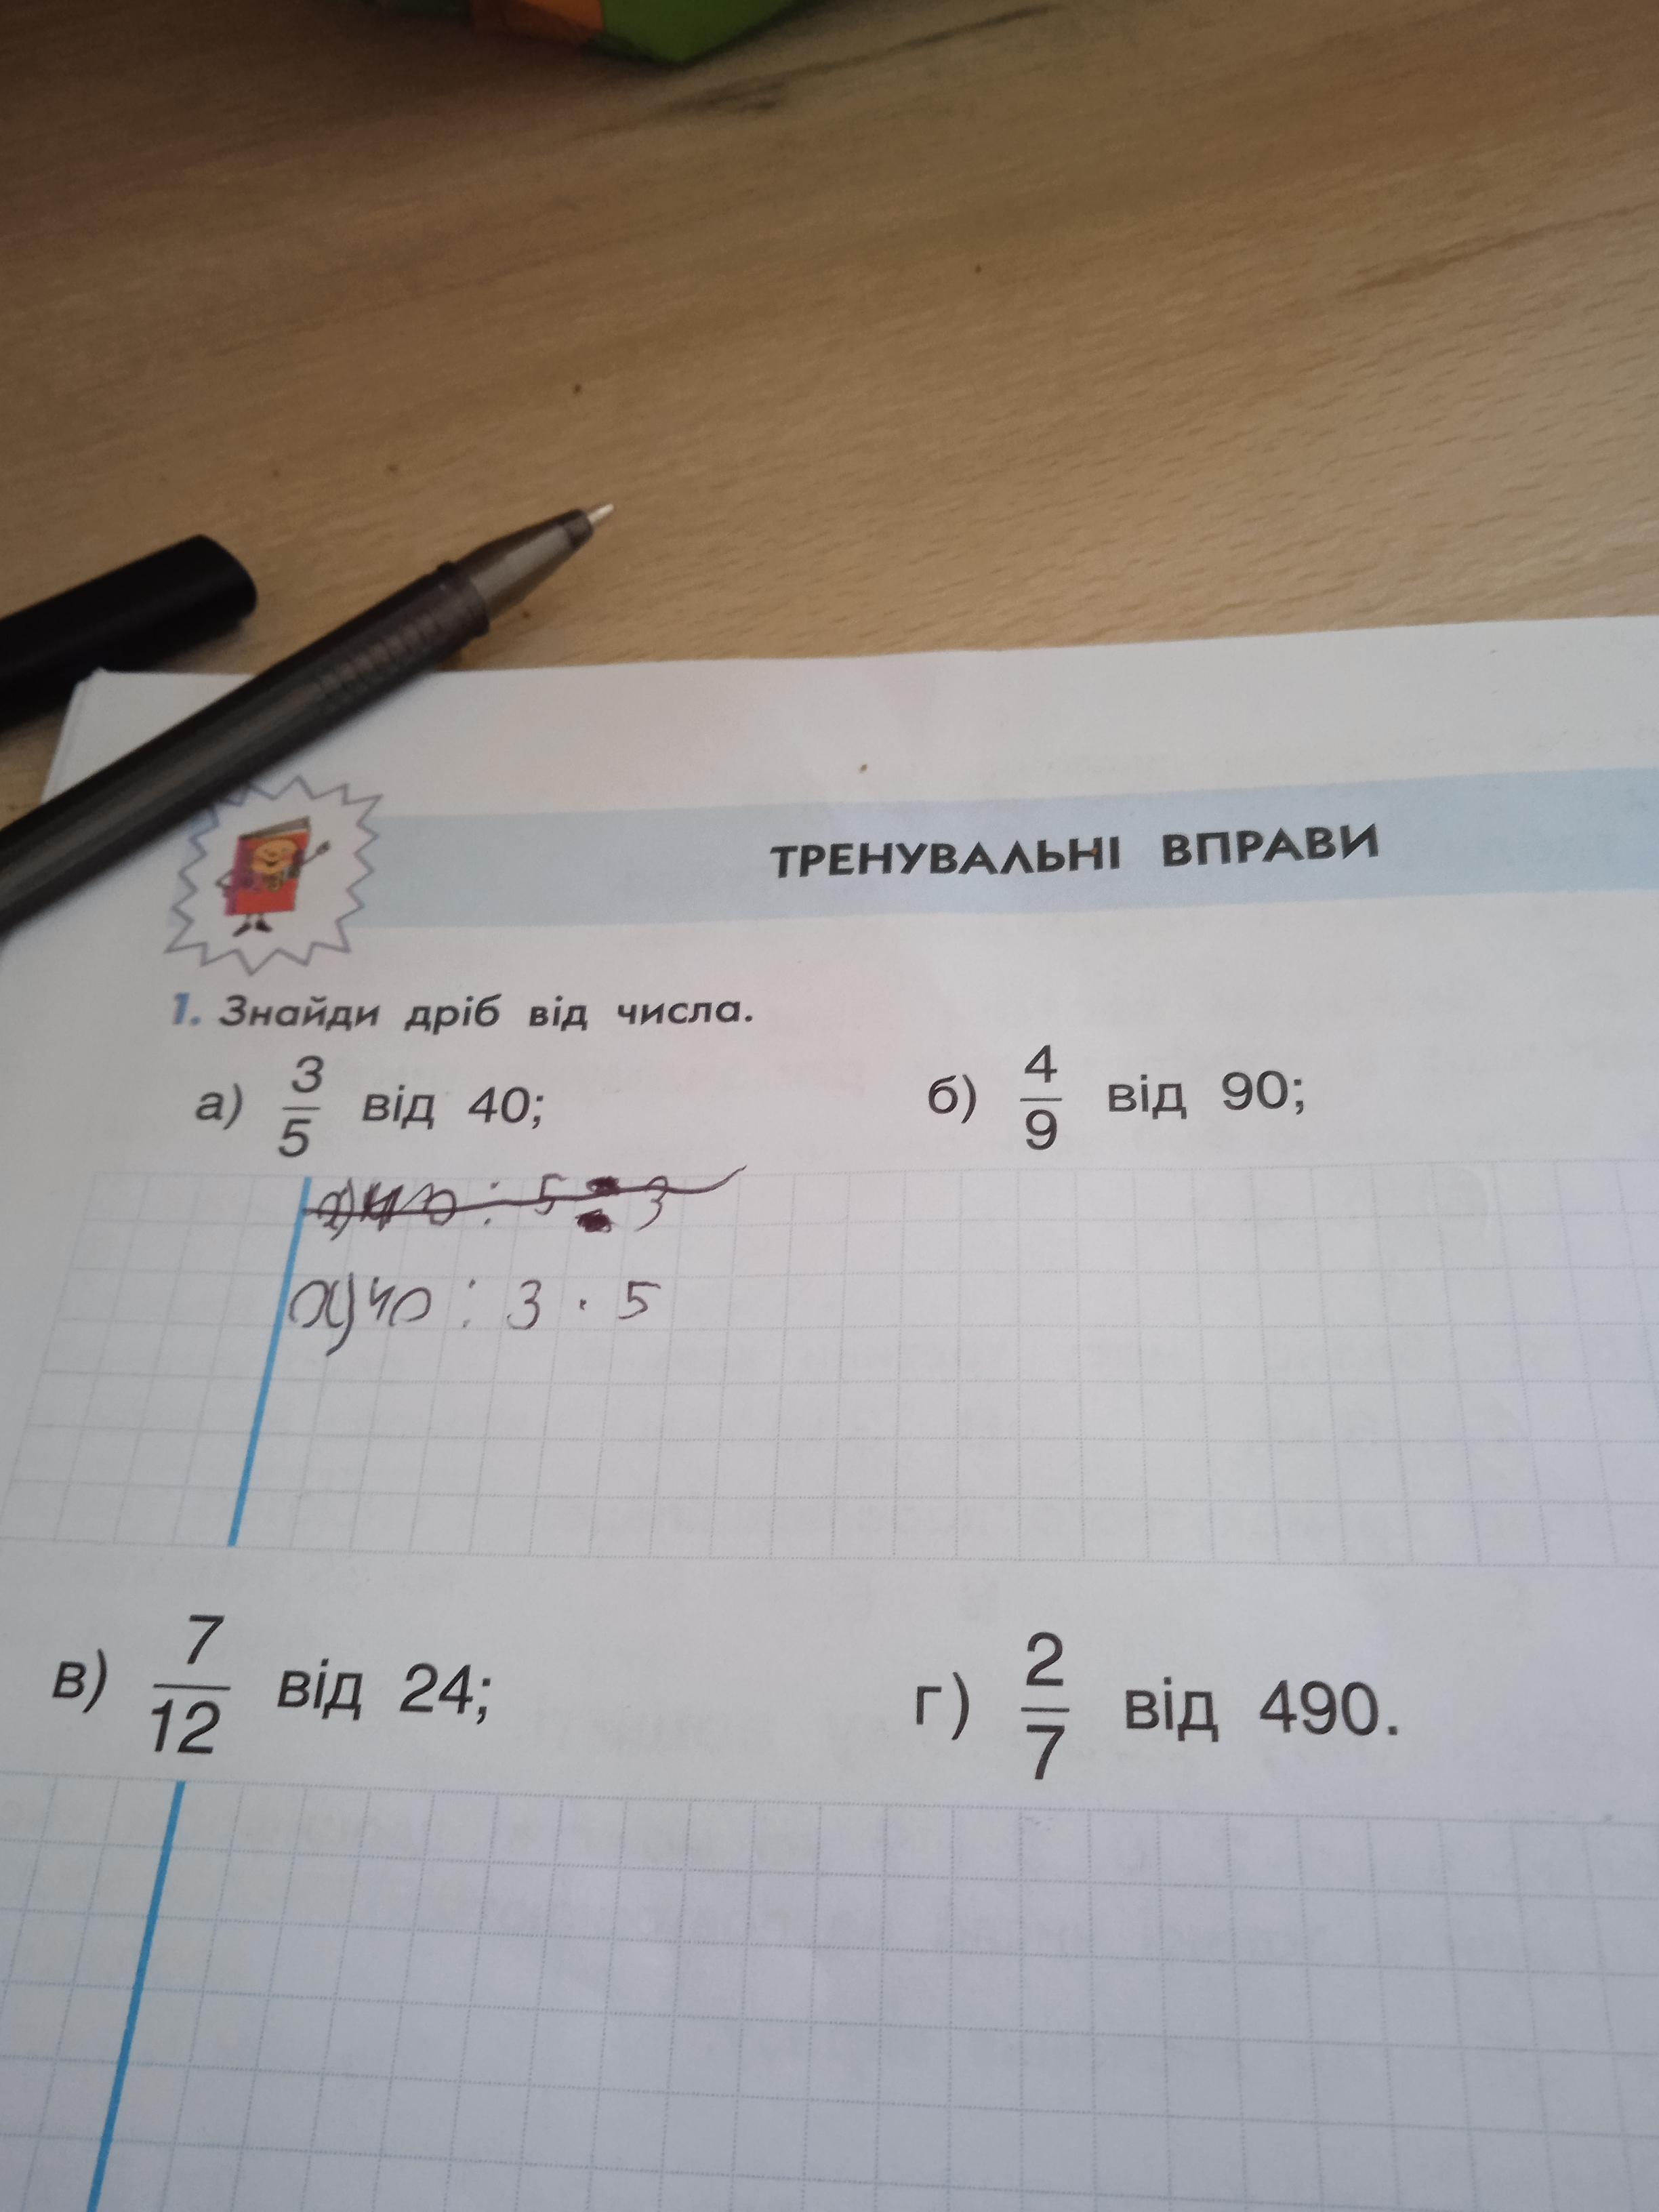 ТРЕНУВАЛЬНІ ВПРАВИ
1. Знайди дріб від числа.
а) 3/5 від 40; б) 4/9 від 90;
а) 40 : 5 : 3
а) 40 : 3 · 5
в) 7/12 від 24; г) 2/7 від 490.